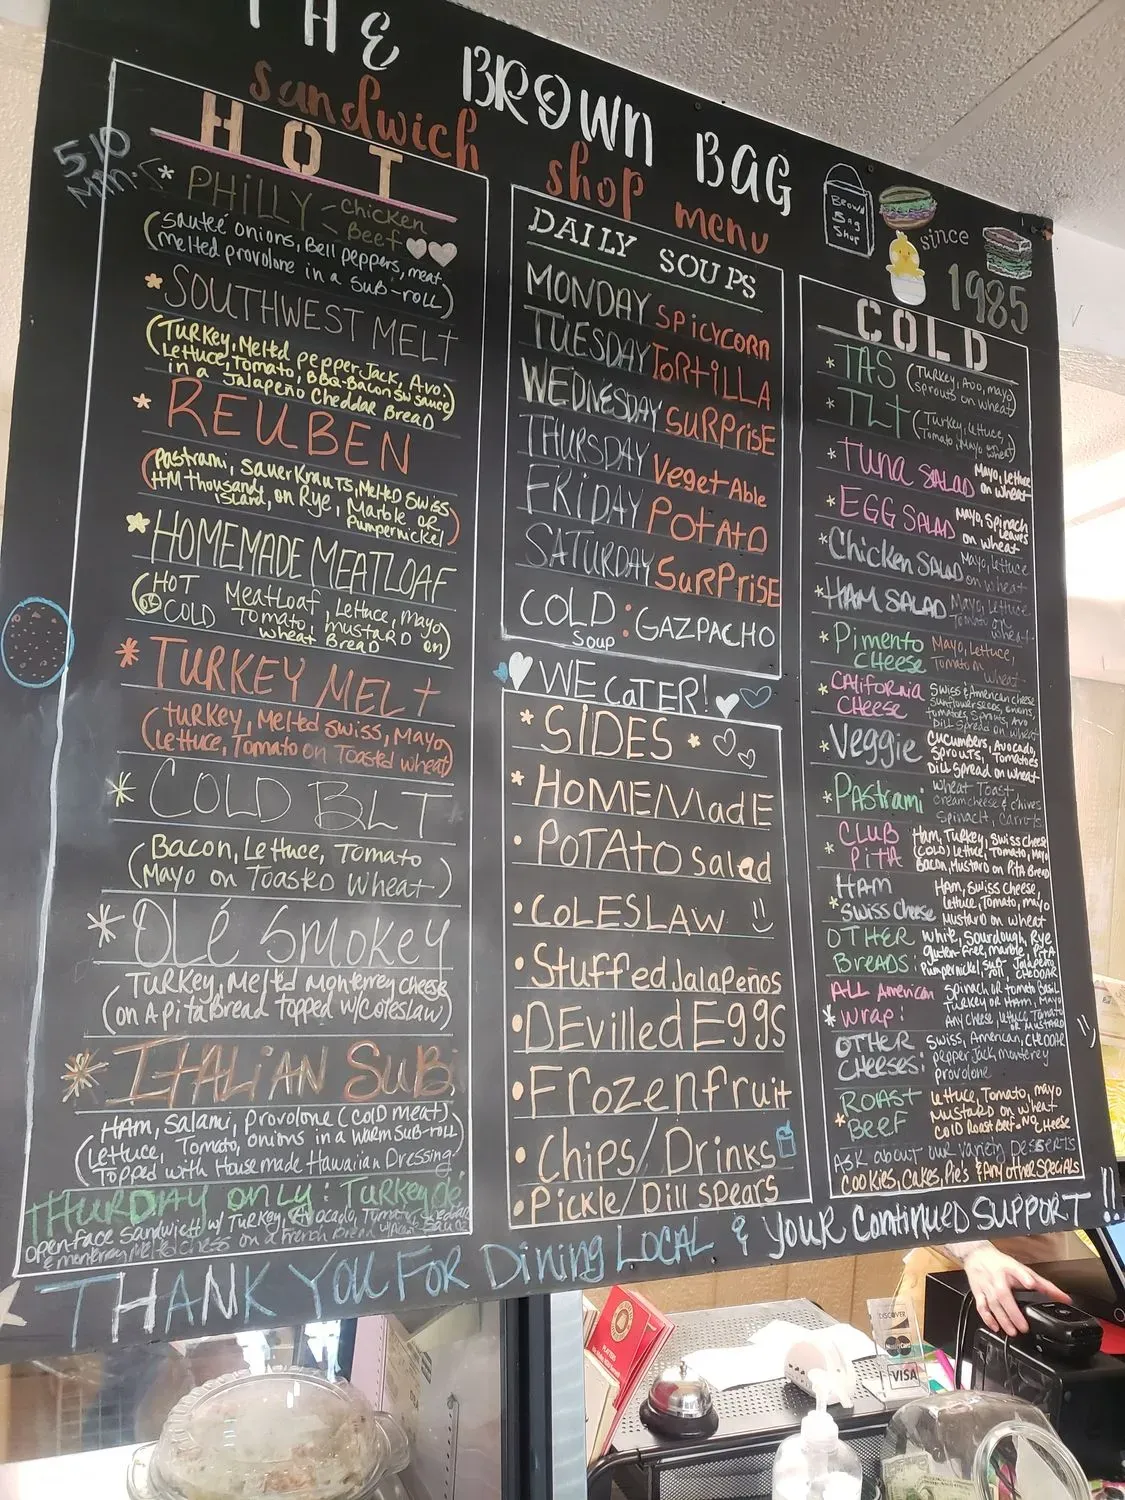 THE BROWN BAG
sandwich shop menu
Brown
Bag
Shop
since
1985
HOT
5-10
Min.
* PHILLY - Chicken
Beef
(Sauteé onions, Bell peppers, meat,
melted provolone in a SUB-roll)
* SOUTHWEST MELT
(Turkey, Melted pepper Jack, Avo,
Lettuce, Tomato, BBQ-Bacon SW sauce
in a Jalapeño Cheddar BreaD)
* REUBEN
(Pastrami, SauerKrauts, Melted Swiss
HM thousand
island, on Rye, Marble or
Pumpernickel)
* HOMEMADE MEATLOAF
(HOT
OR
COLD
MeatLoaf, Lettuce, Mayo
Tomato, mustaRD on
wheat BreaD)
* TURKEY MELt
(turkey, Melted Swiss, Mayo
Lettuce, Tomato on Toasted wheat)
* COLD BLT
(Bacon, Lettuce, Tomato
Mayo on ToasteD Wheat)
* Olé Smokey
(Turkey, Melted Monterrey cheese
on A pita Bread topped w/Coleslaw)
* ITALiAN SUB
(HAM, Salami, Provolone (cold meat)
Lettuce, Tomato, onions in a warm SUB-roll
Topped with Housemade Hawaiian Dressing)
THURDAY ONLY: TURKey de
open face sandwich w/ Turkey, Avocado, Tomato, cheddar
DAILY SOUPS
MONDAY SPiCYCORN
TUESDAY ToRtiLLA
WEDNESDAY SURPRISE
THURSDAY VegetAble
FRiDAY POtAtO
SATURDAY SuRPRiSE
COLD
Soup
: GAZPACHO
WE CaTER!
* SIDES *
* HOMEMadE
• POTATO Salad
• COLESLAW
• Stuffed Jalapeños
• DEvilled Eggs
• Frozen fruit
• Chips/Drinks
• Pickle/Dill spears
COLD
* TAS (Turkey, Avo, mayo
sprouts on wheat)
* TLt (Turkey, Lettuce,
Tomato, Mayo on wheat)
* TUNA SALAD Mayo, Lettuce
on wheat
* EGG SALAD Mayo, Spinach
Leaves
on wheat
* Chicken SALAD Mayo, Lettuce
on wheat
* HAM SALAD Mayo, Lettuce
Tomato on
wheat
* Pimento
CHeese Mayo, Lettuce,
Tomato on
* CALiforniA
CHeese Swiss & American cheese
Sunflower seeds, onions,
tomatoes, Sprouts, Avo
Dill Spread on wheat
* Veggie CUCumbers, Avocado,
Sprouts, Tomatoes
Dill spread on wheat
* PAStrami Wheat Toast,
cream cheese & chives
Spinach, Carrots
* CLUB
PitA Ham, Turkey, Swiss cheese
(COLD) Lettuce, Tomato, Mayo
Bacon, Mustard on Pita Bread
* HAM
Swiss Cheese Ham, Swiss cheese,
lettuce, Tomato, mayo
MustarD on wheat
OTHER
BREADS: White, Sourdough, Rye
gluten-Free, marble, PitA
Pumpernickel, Sub-roll, Jalapeño
CHEDDAR
ALL American
* Wrap: Spinach or tomato Basil
Turkey OR Ham, Mayo
Any cheese, lettuce, Tomato
OR MUSTARD
OTHER
CHEESES: Swiss, American, CHEDDAR
pepper Jack, monterey
provolone
* ROAST
BeeF Lettuce, Tomato, mayo
MUSTARD on wheat
COLD Roast Beef-No CHeese
ASK about our variety Desserts
COOKiES, CAKES, PiE's & Any other SPECiALS
THANK YOU FOR Dining LOCAL & YOUR Continued SUPPORT !!
DISCOVER
MasterCard
VISA